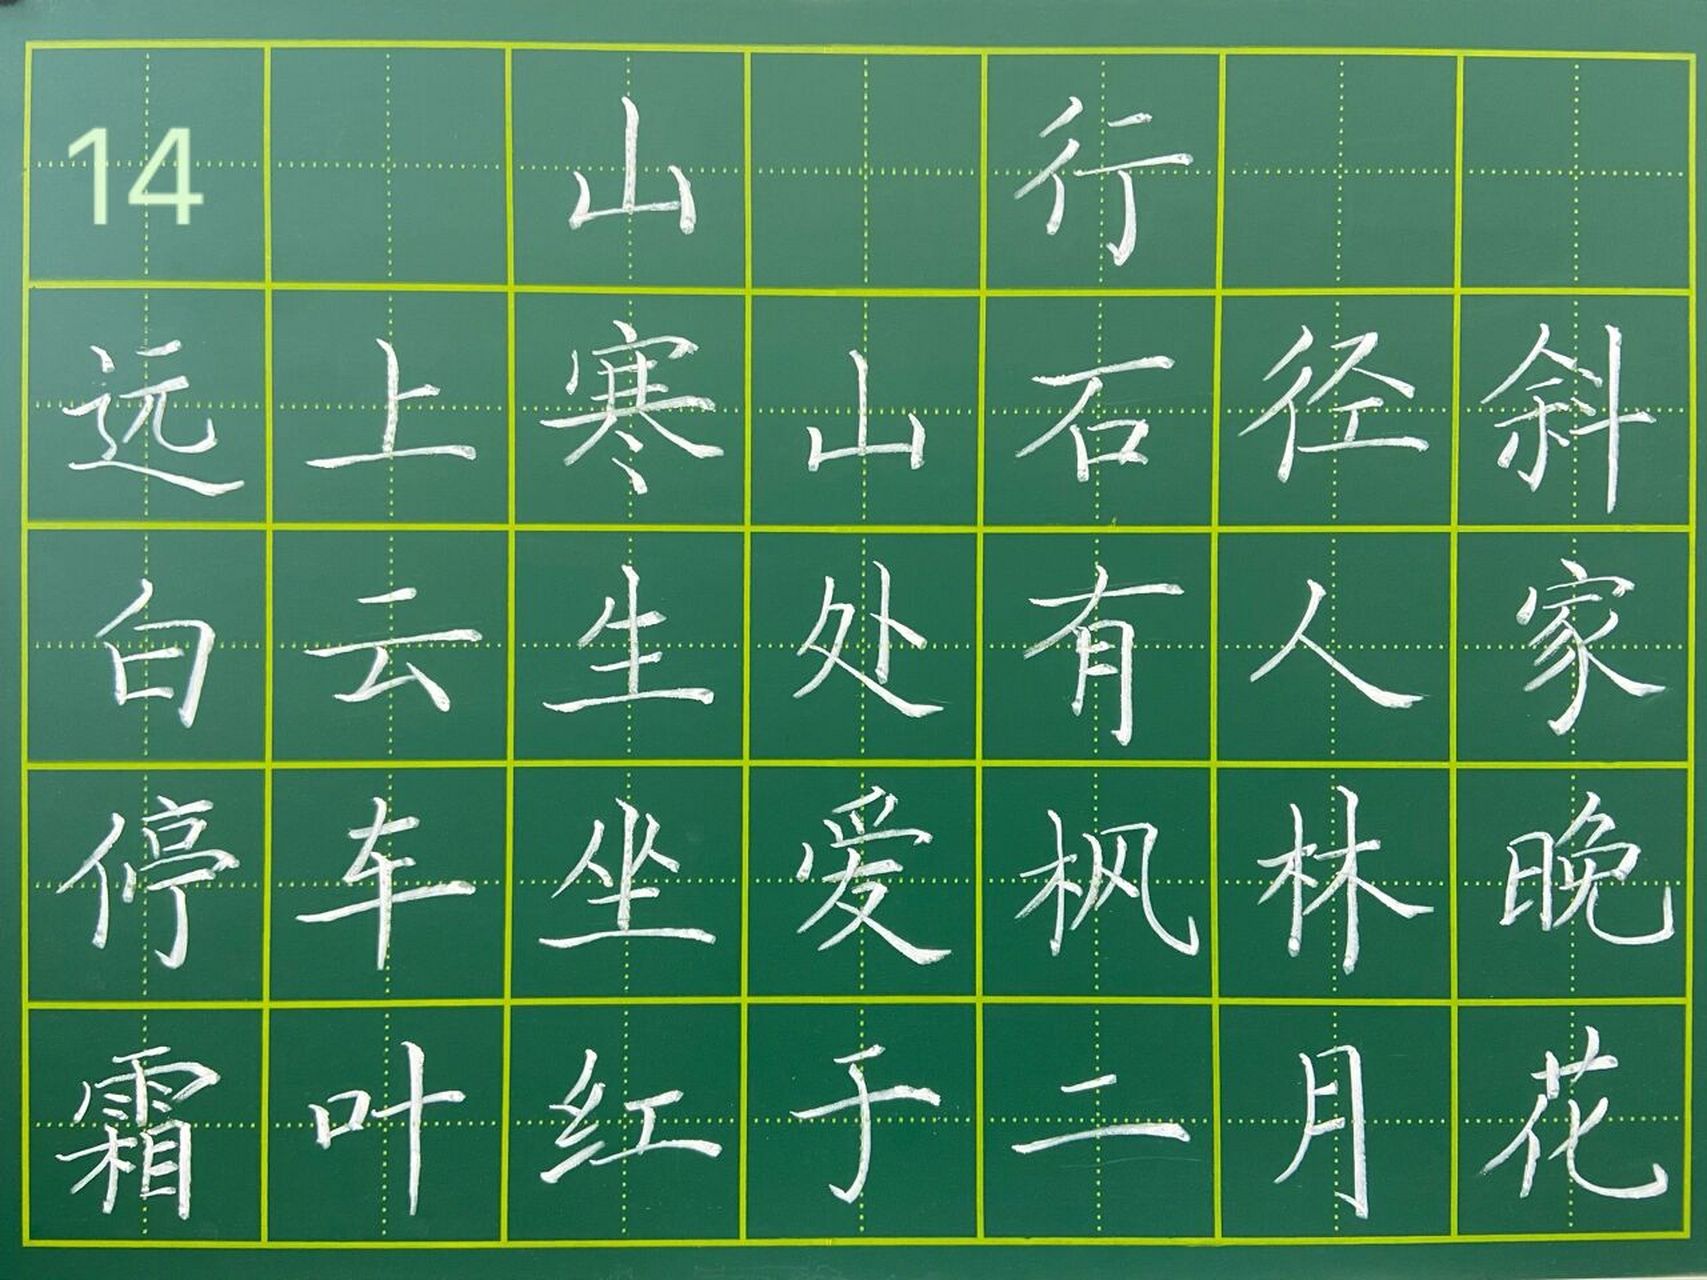 14 山 行
远上寒山石径斜
白云生处有人家
停车坐爱枫林晚
霜叶红于二月花